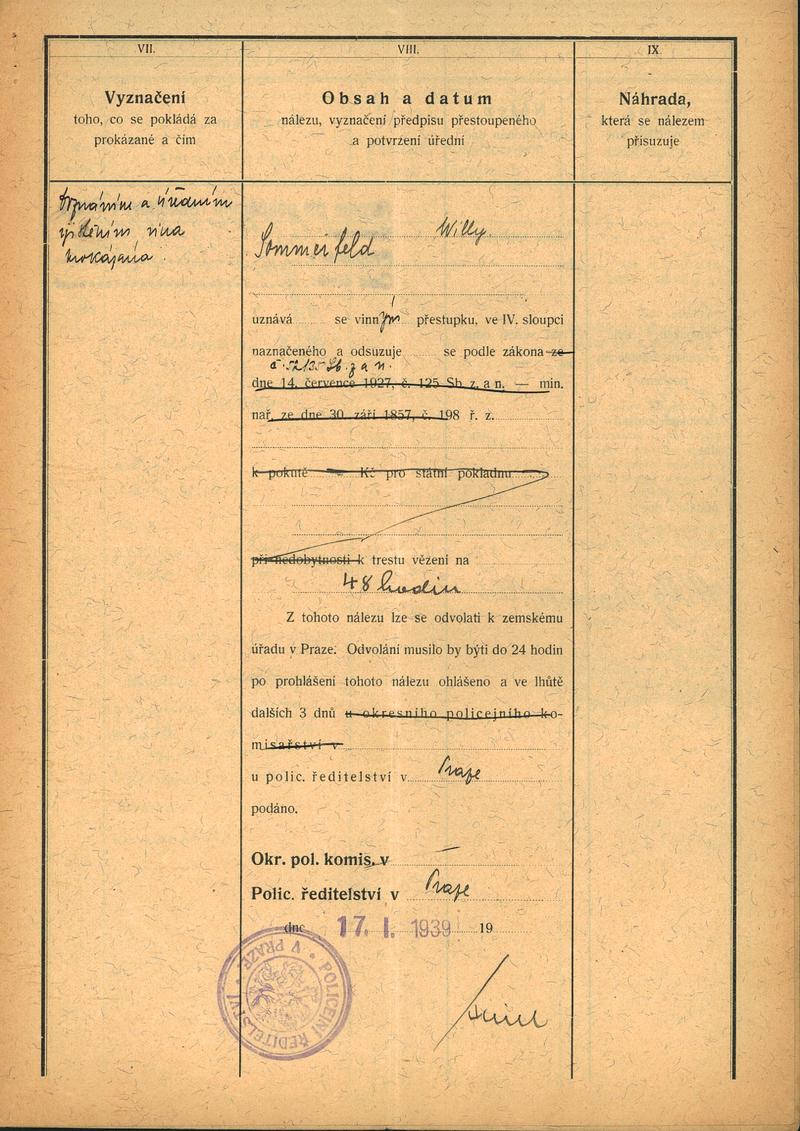 VII.
Vyznačení
toho, co se pokládá za
prokázané a čím
a úředním
vina
VIII.
Obsah a datum
nálezu, vyznačení předpisu přestoupeného
a potvrzení úřední
Willy
Sommerfeld
uznává se vinným přestupku, ve IV. sloupci
naznačeného a odsuzuje se podle zákona ze
Sb. z a n.
dne 14. července 1927, č. 125 Sb z. a n. — min.
nař. ze dne 30. září 1857, č. 198 ř. z.
k pokutě Kč pro státní pokladnu
při nedobytnosti k trestu vězení na
48 hodin
Z tohoto nálezu lze se odvolati k zemskému
úřadu v Praze. Odvolání musilo by býti do 24 hodin
po prohlášení tohoto nálezu ohlášeno a ve lhůtě
dalších 3 dnů u okresního policejního ko-
misařství v
u polic. ředitelství v Praze
podáno.
Okr. pol. komis. v —
Polic. ředitelství v Praze
dne 17. I. 1939 19
POLICEJNÍ ŘEDITELSTVÍ V PRAZE
IX.
Náhrada,
která se nálezem
přisuzuje